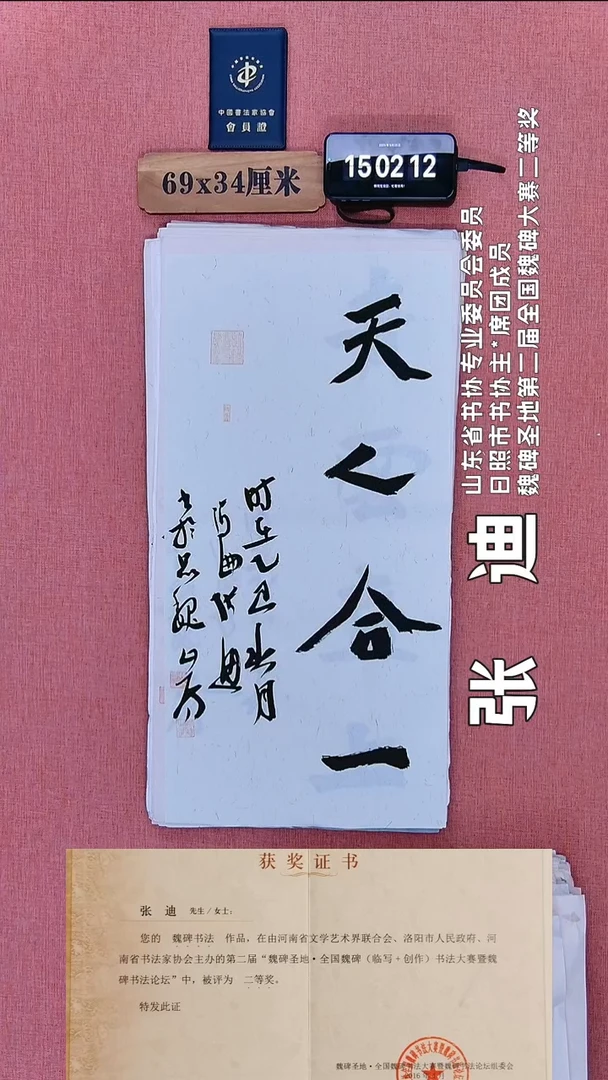 中國書法家協會
會員證
69x34厘米
15 02 12
天人合一
时在乙巳
月
张迪
山东省书协专业委员会委员
日照市书协主*席团成员
魏碑圣地第二届全国魏碑大赛二等奖
张 迪
获奖证书
张 迪 先生/女士：
您的 魏碑书法 作品，在由河南省文学艺术界联合会、洛阳市人民政府、河
南省书法家协会主办的第二届“魏碑圣地·全国魏碑（临写+创作）书法大赛暨魏
碑书法论坛”中，被评为 二等奖。
特发此证
魏碑圣地·全国魏碑书法大赛暨魏碑书法论坛组委会